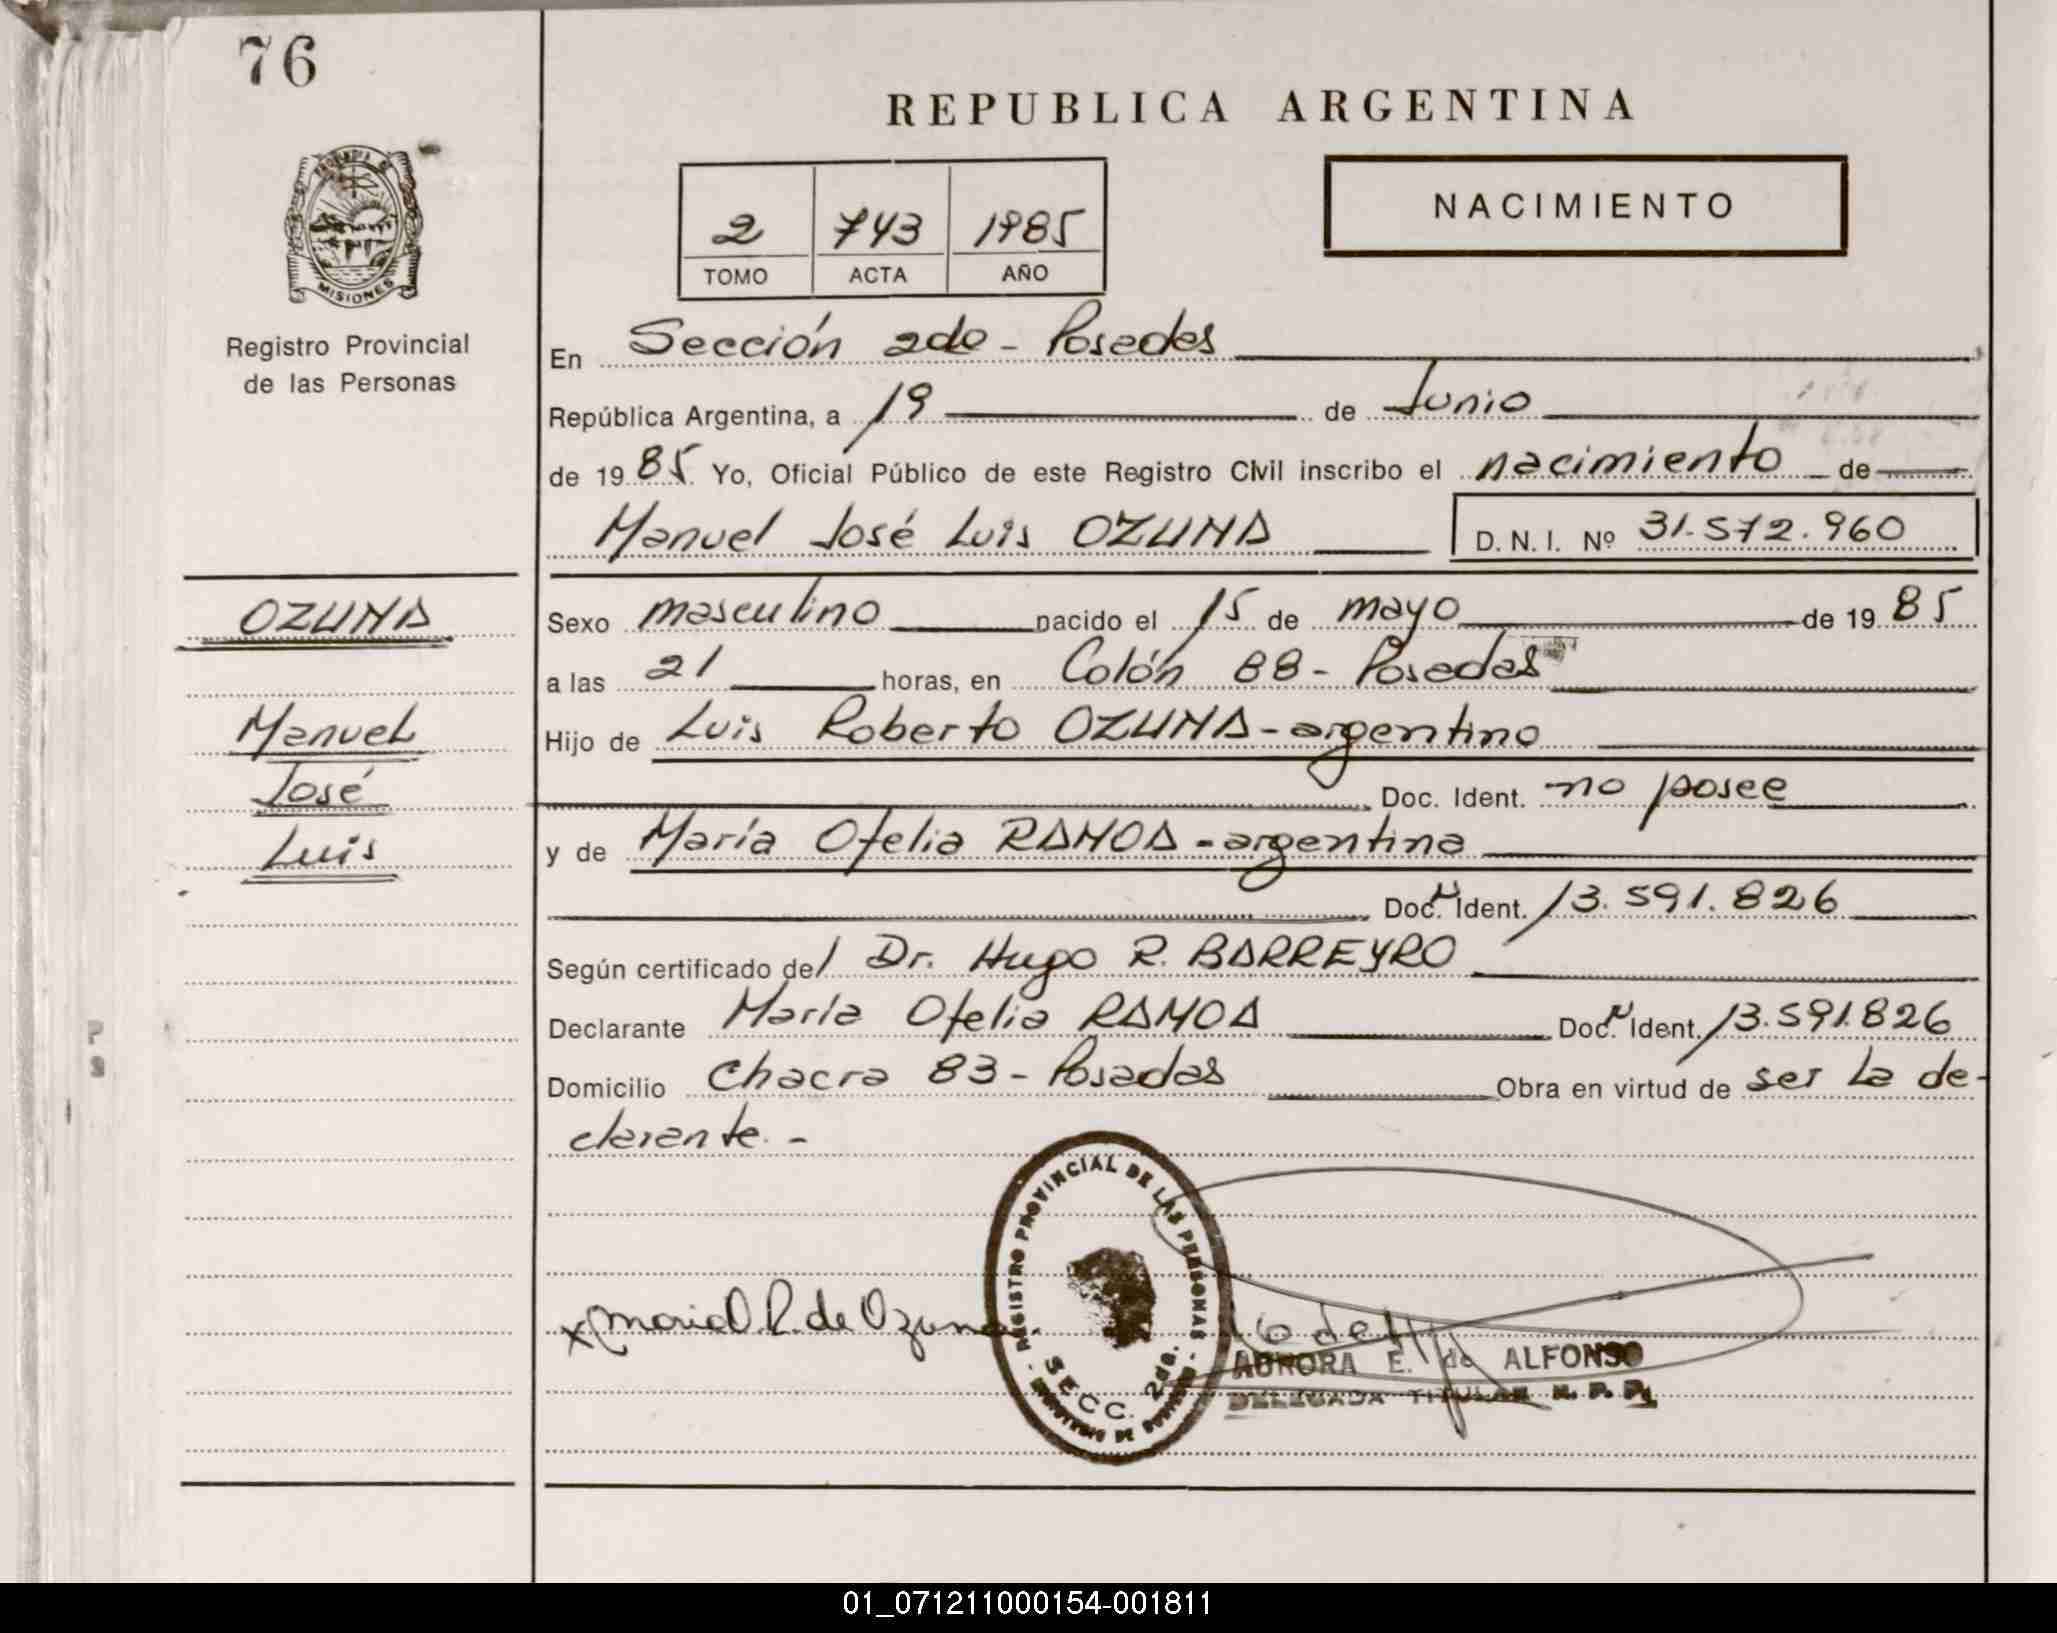 76
REPUBLICA ARGENTINA
PROVINCIA DE MISIONES
Registro Provincial
de las Personas
2 743 1985
TOMO ACTA AÑO
NACIMIENTO
En Sección 2da - Posadas
República Argentina, a 19 de Junio
de 1985 Yo, Oficial Público de este Registro Civil inscribo el nacimiento de
Manuel José Luis OZUNA D. N. I. Nº 31.572.960
OZUNA
Manuel
José
Luis
Sexo masculino nacido el 15 de mayo de 1985
a las 21 horas, en Colón 88 - Posadas
Hijo de Luis Roberto OZUNA - argentino
Doc. Ident. no posee
y de María Ofelia RAMOA - argentina
Doc. Ident. 13.591.826
Según certificado del Dr. Hugo R. BARREYRO
Declarante María Ofelia RAMOA Doc. Ident. 13.591.826
Domicilio Chacra 83 - Posadas Obra en virtud de ser la de-
clarante. -
REGISTRO PROVINCIAL DE LAS PERSONAS
SECC. 2da.
x Maria O. R. de Ozuna
AURORA E. de ALFONSO
DELEGADA TITULAR R. P. P.
01_071211000154-001811